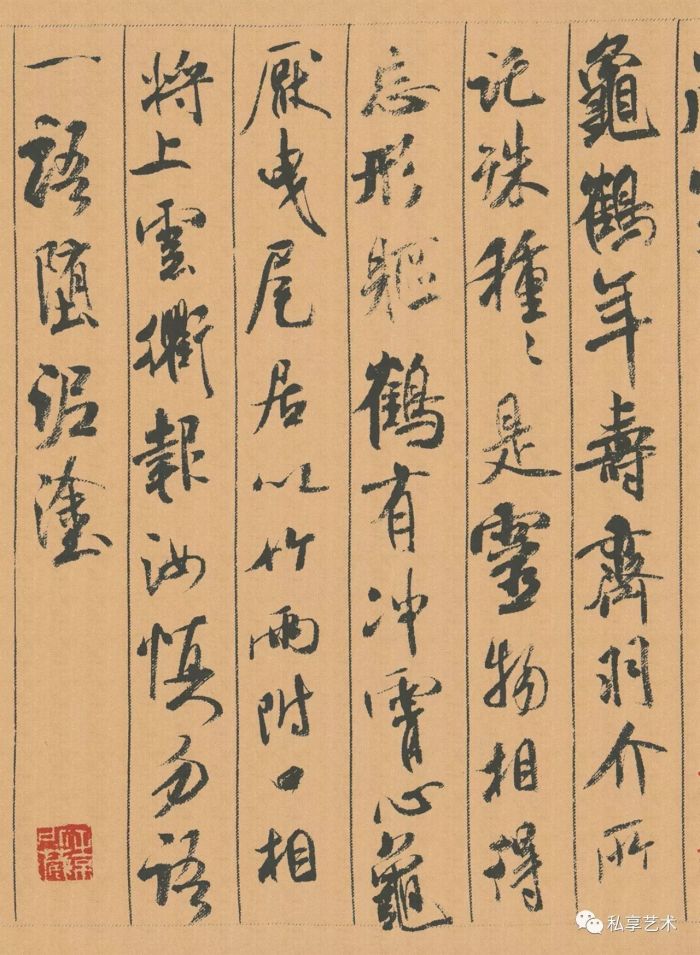 龜鶴年壽齊羽介所
託殊種〻是靈物相得
忘形軀鶴有冲霄心龜
厭曳尾居以竹兩附口相
將上雲衢報汝慎勿語
一語墮泥塗
私享艺术